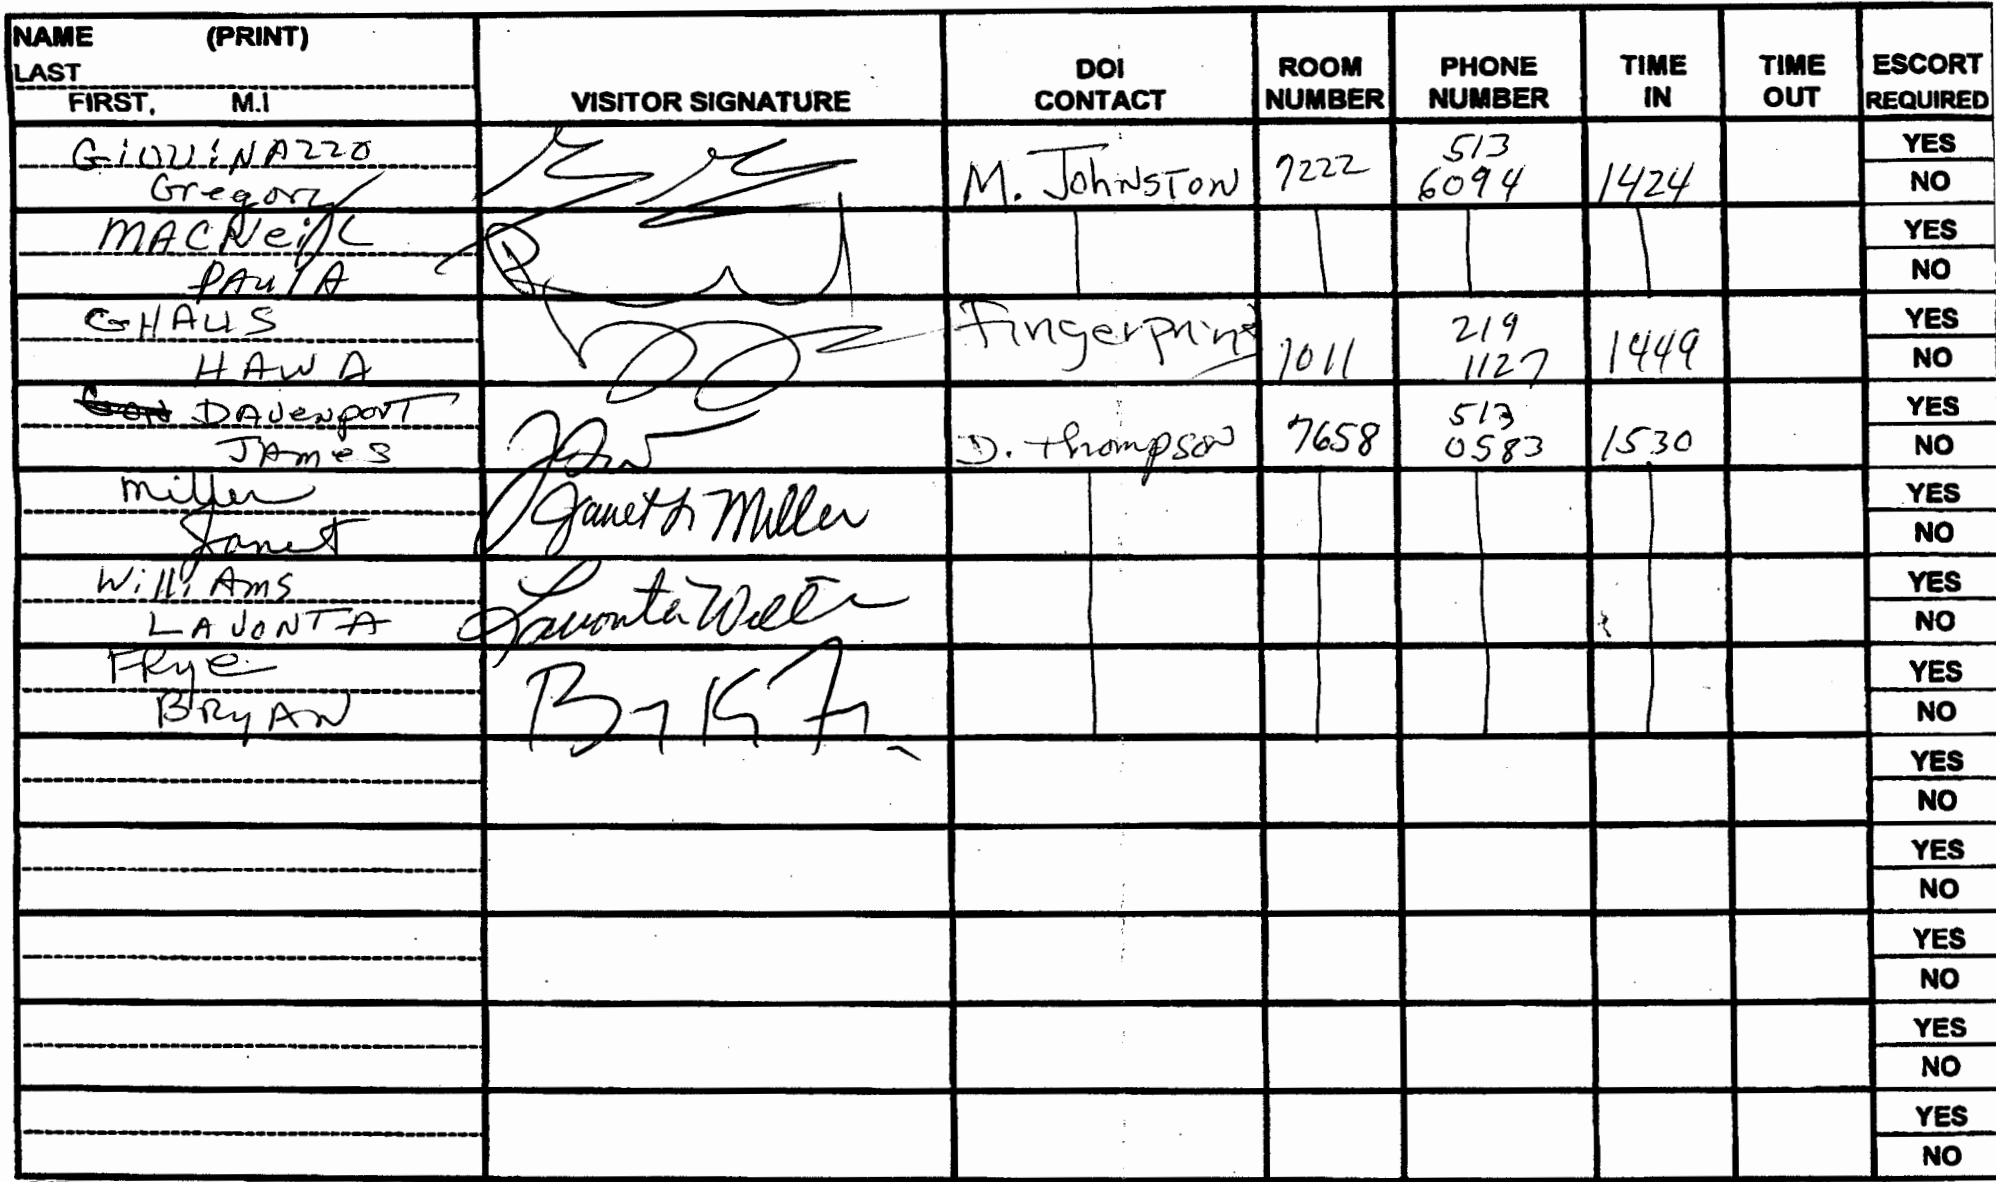 NAME (PRINT)
LAST
FIRST, M.I
VISITOR SIGNATURE
DOI
CONTACT
ROOM
NUMBER
PHONE
NUMBER
TIME
IN
TIME
OUT
ESCORT
REQUIRED
GiOViNAZZO
Gregory
M. JOHNSTON
7222
513
6094
1424
YES
NO
MACNeilL
PAulA
YES
NO
GHAUS
HAWA
Fingerprint
1011
219
1127
1449
YES
NO
DAVenporT
JAmes
D. Thompson
7658
513
0583
1530
YES
NO
Miller
Janet
Janet L Miller
YES
NO
WilliAms
LAVONTA
Lavonta
YES
NO
FRye
BRyAN
YES
NO
YES
NO
YES
NO
YES
NO
YES
NO
YES
NO